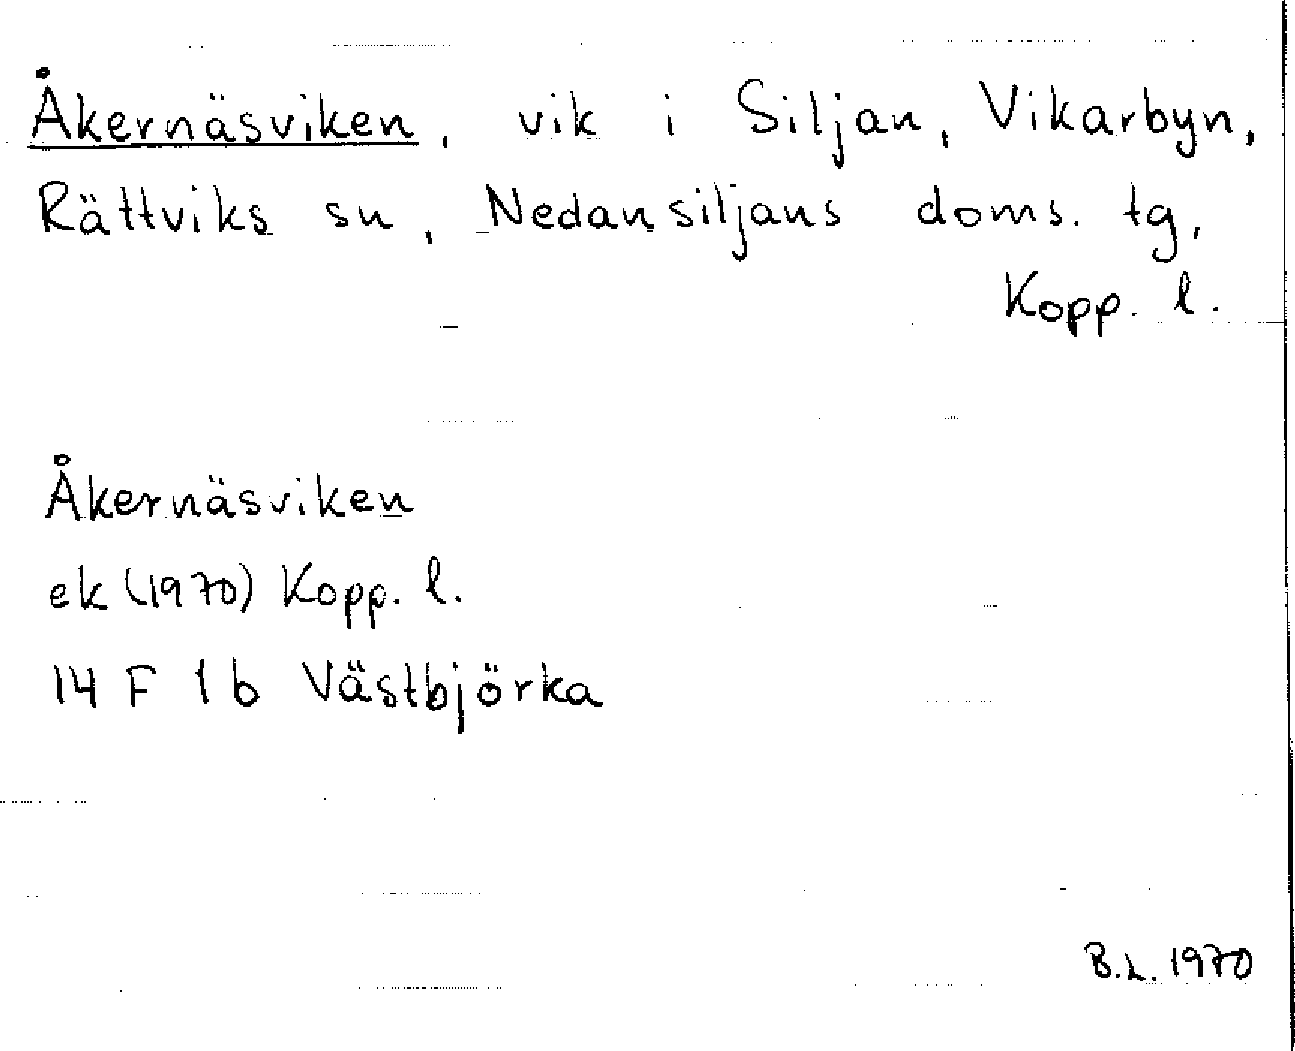 Åkernäsviken, vik i Siljan, Vikarbyn,
Rättviks sn, Nedansiljans doms. tg,
Kopp. l.
Åkernäsviken
ek (1970) Kopp. l.
14 F 1 b Västbjörka
B.L. 1970